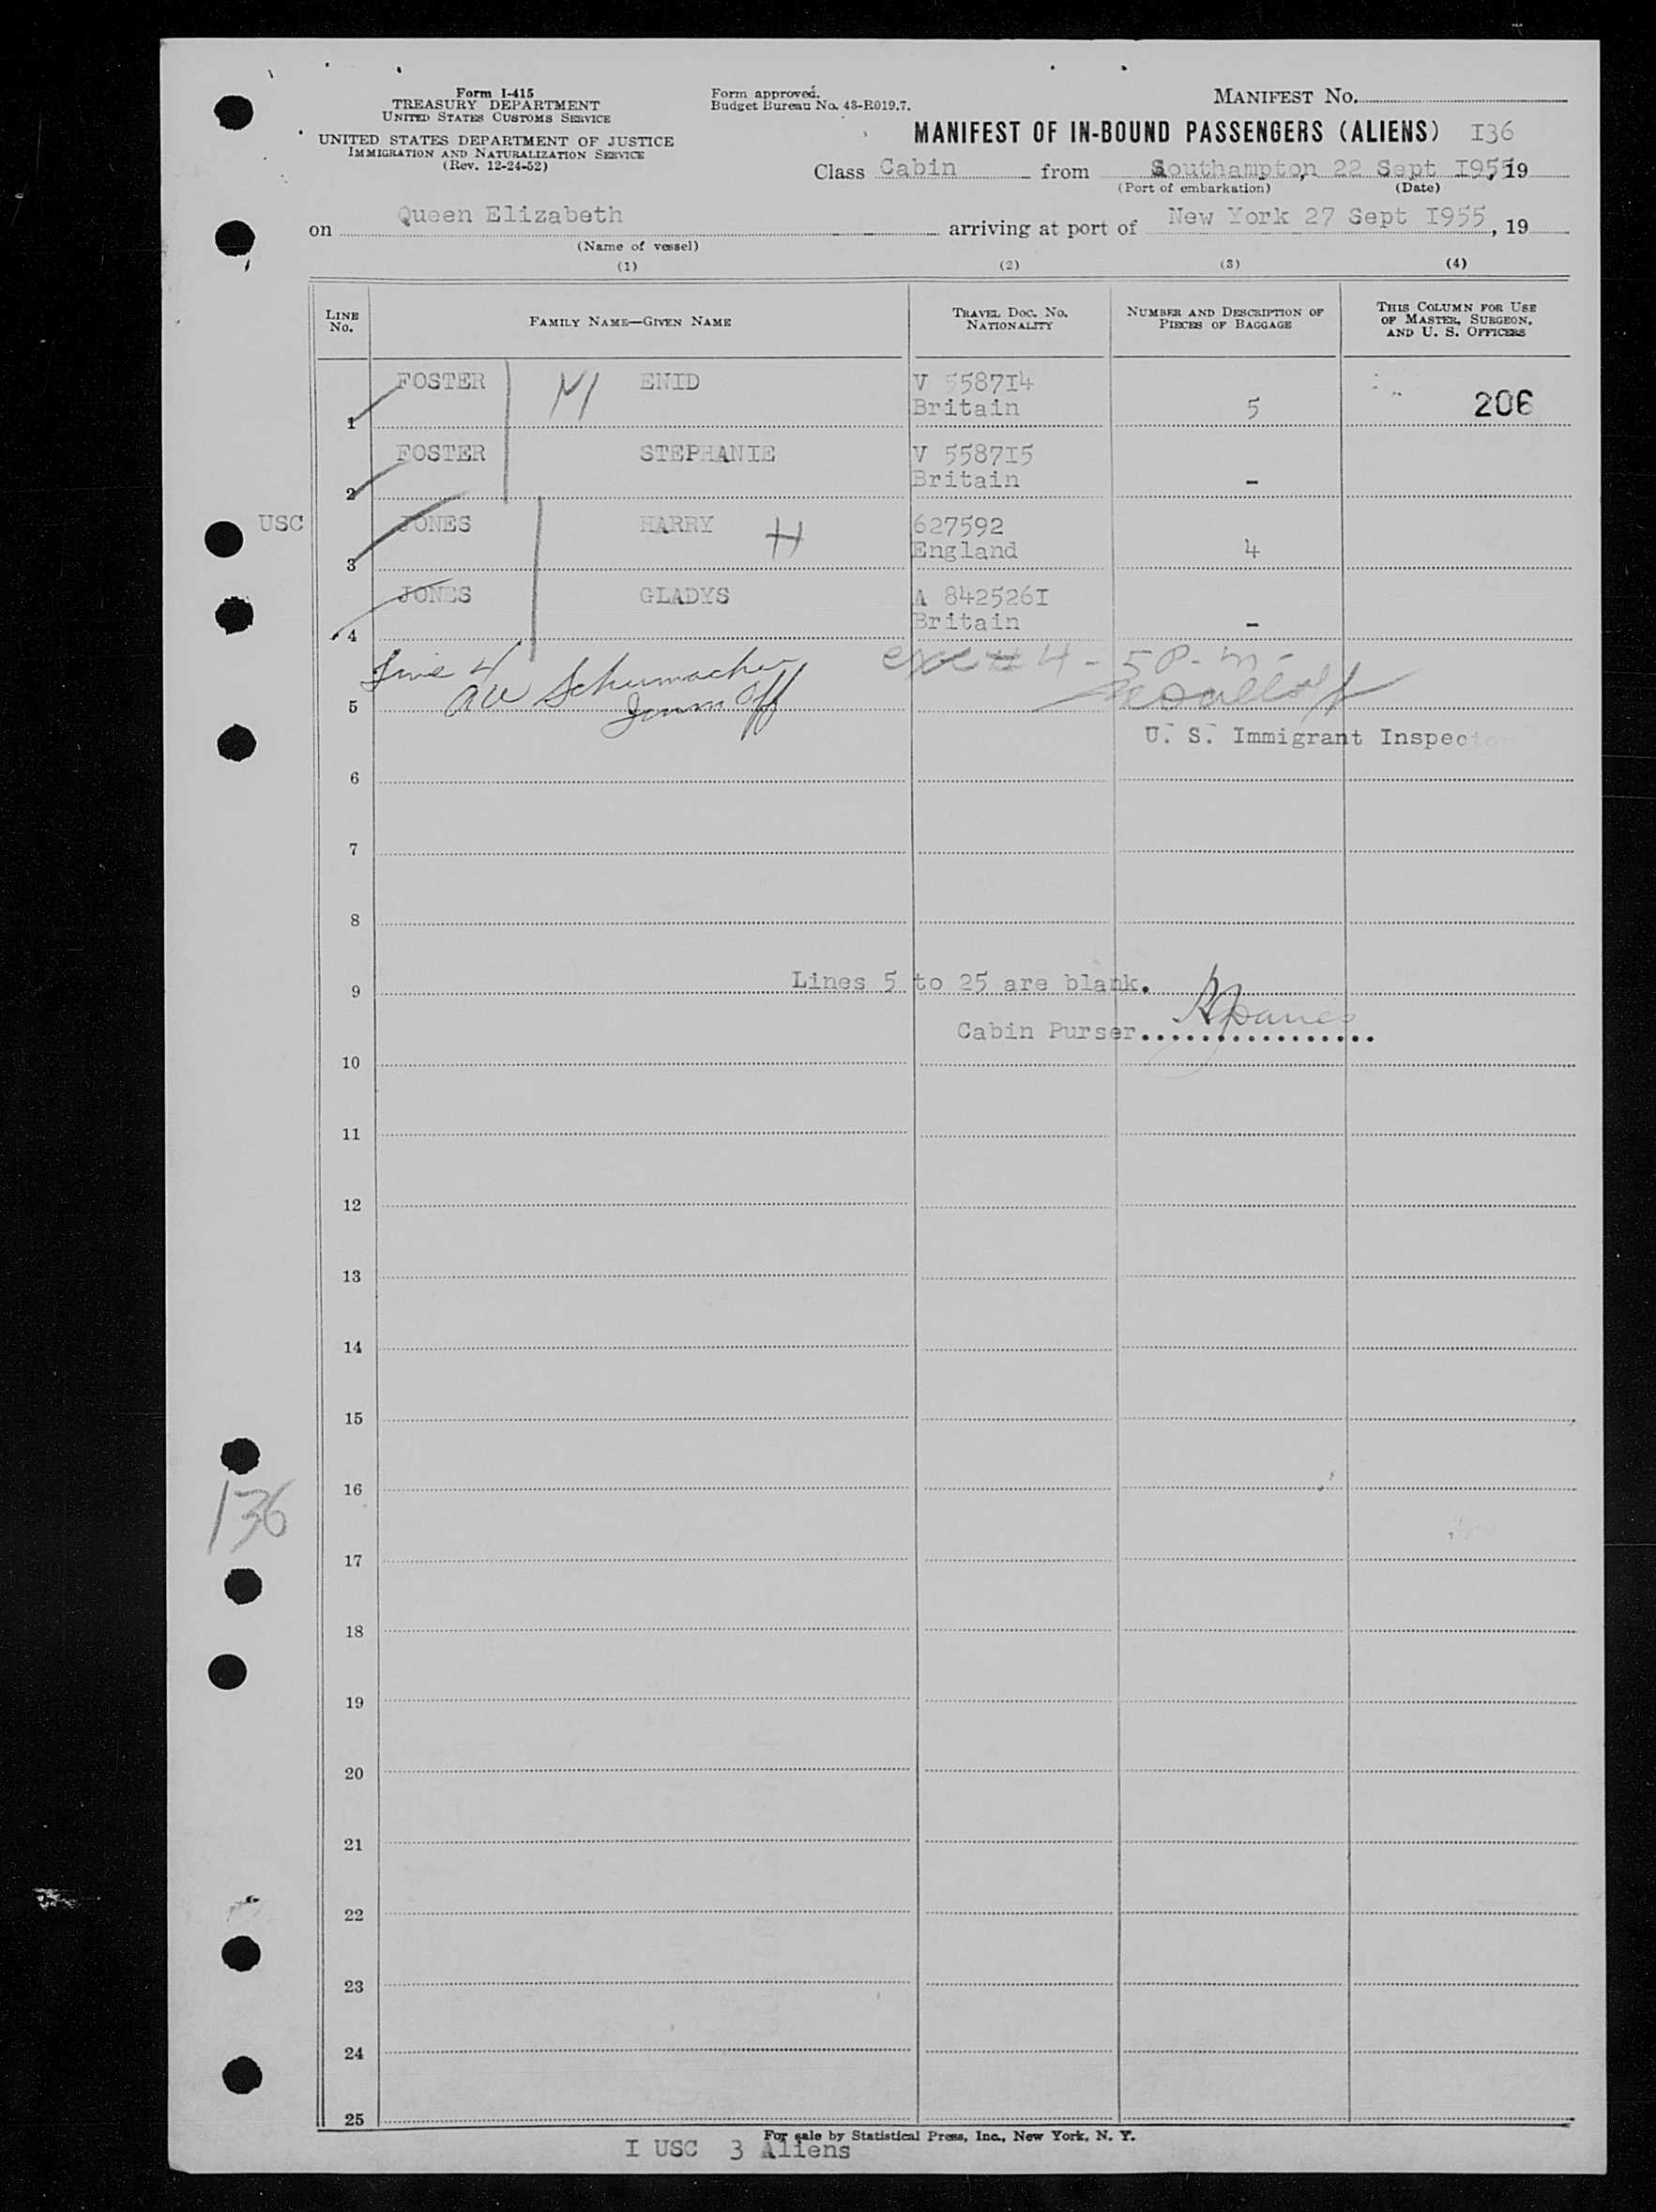 Form I-415
TREASURY DEPARTMENT
UNITED STATES CUSTOMS SERVICE
UNITED STATES DEPARTMENT OF JUSTICE
IMMIGRATION AND NATURALIZATION SERVICE
(Rev. 12-24-52)
Form approved.
Budget Bureau No. 43-R019.7.
MANIFEST No.
MANIFEST OF IN-BOUND PASSENGERS (ALIENS) I36
Class Cabin from Southampton, 22 Sept I955, 19
(Port of embarkation) (Date)
on Queen Elizabeth arriving at port of New York 27 Sept I955, 19
(Name of vessel)
(1) (2) (3) (4)
LINE No. FAMILY NAME—GIVEN NAME TRAVEL DOC. No. NATIONALITY NUMBER AND DESCRIPTION OF PIECES OF BAGGAGE THIS COLUMN FOR USE OF MASTER, SURGEON, AND U. S. OFFICERS
FOSTER M ENID V 5587I4
1 Britain 5 206
FOSTER STEPHANIE V 5587I5
2 Britain -
USC JONES HARRY H 627592
3 England 4
JONES GLADYS A 842526I
4 Britain -
Line 4
AW Schumacher
Imm Off
# 4 - 5 P. m -
5
U. S. Immigrant Inspector
6
7
8
Lines 5 to 25 are blank.
9
Cabin Purser.................
10
11
12
13
14
15
16
136
17
18
19
20
21
22
23
24
25
For sale by Statistical Press, Inc., New York, N. Y.
I USC 3 Aliens